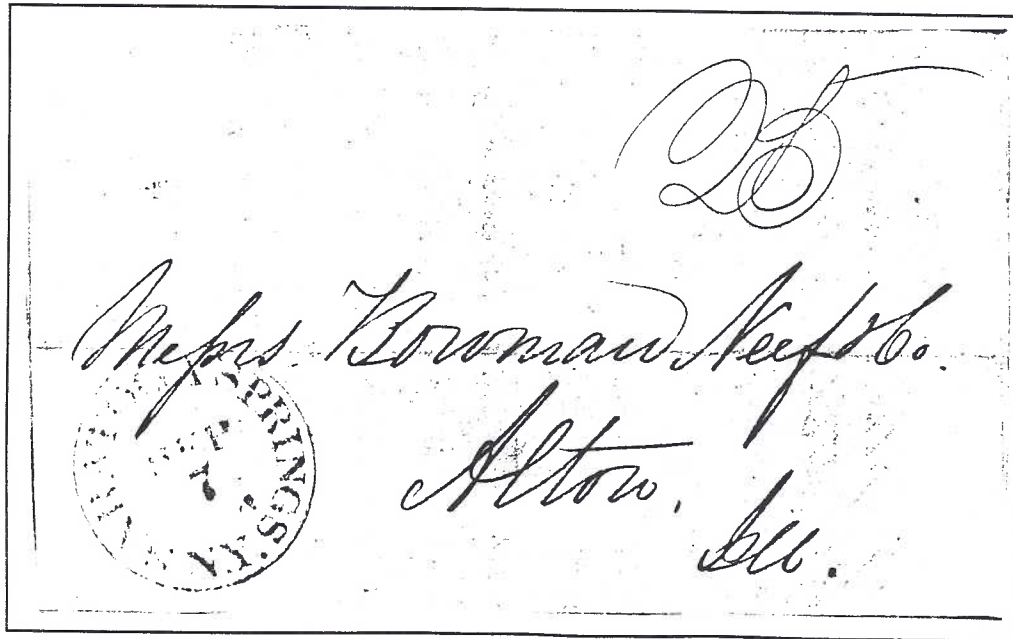 25
Messrs Bowman Neef & Co.
Alton,
Ill.
SPRINGS
SEP
7